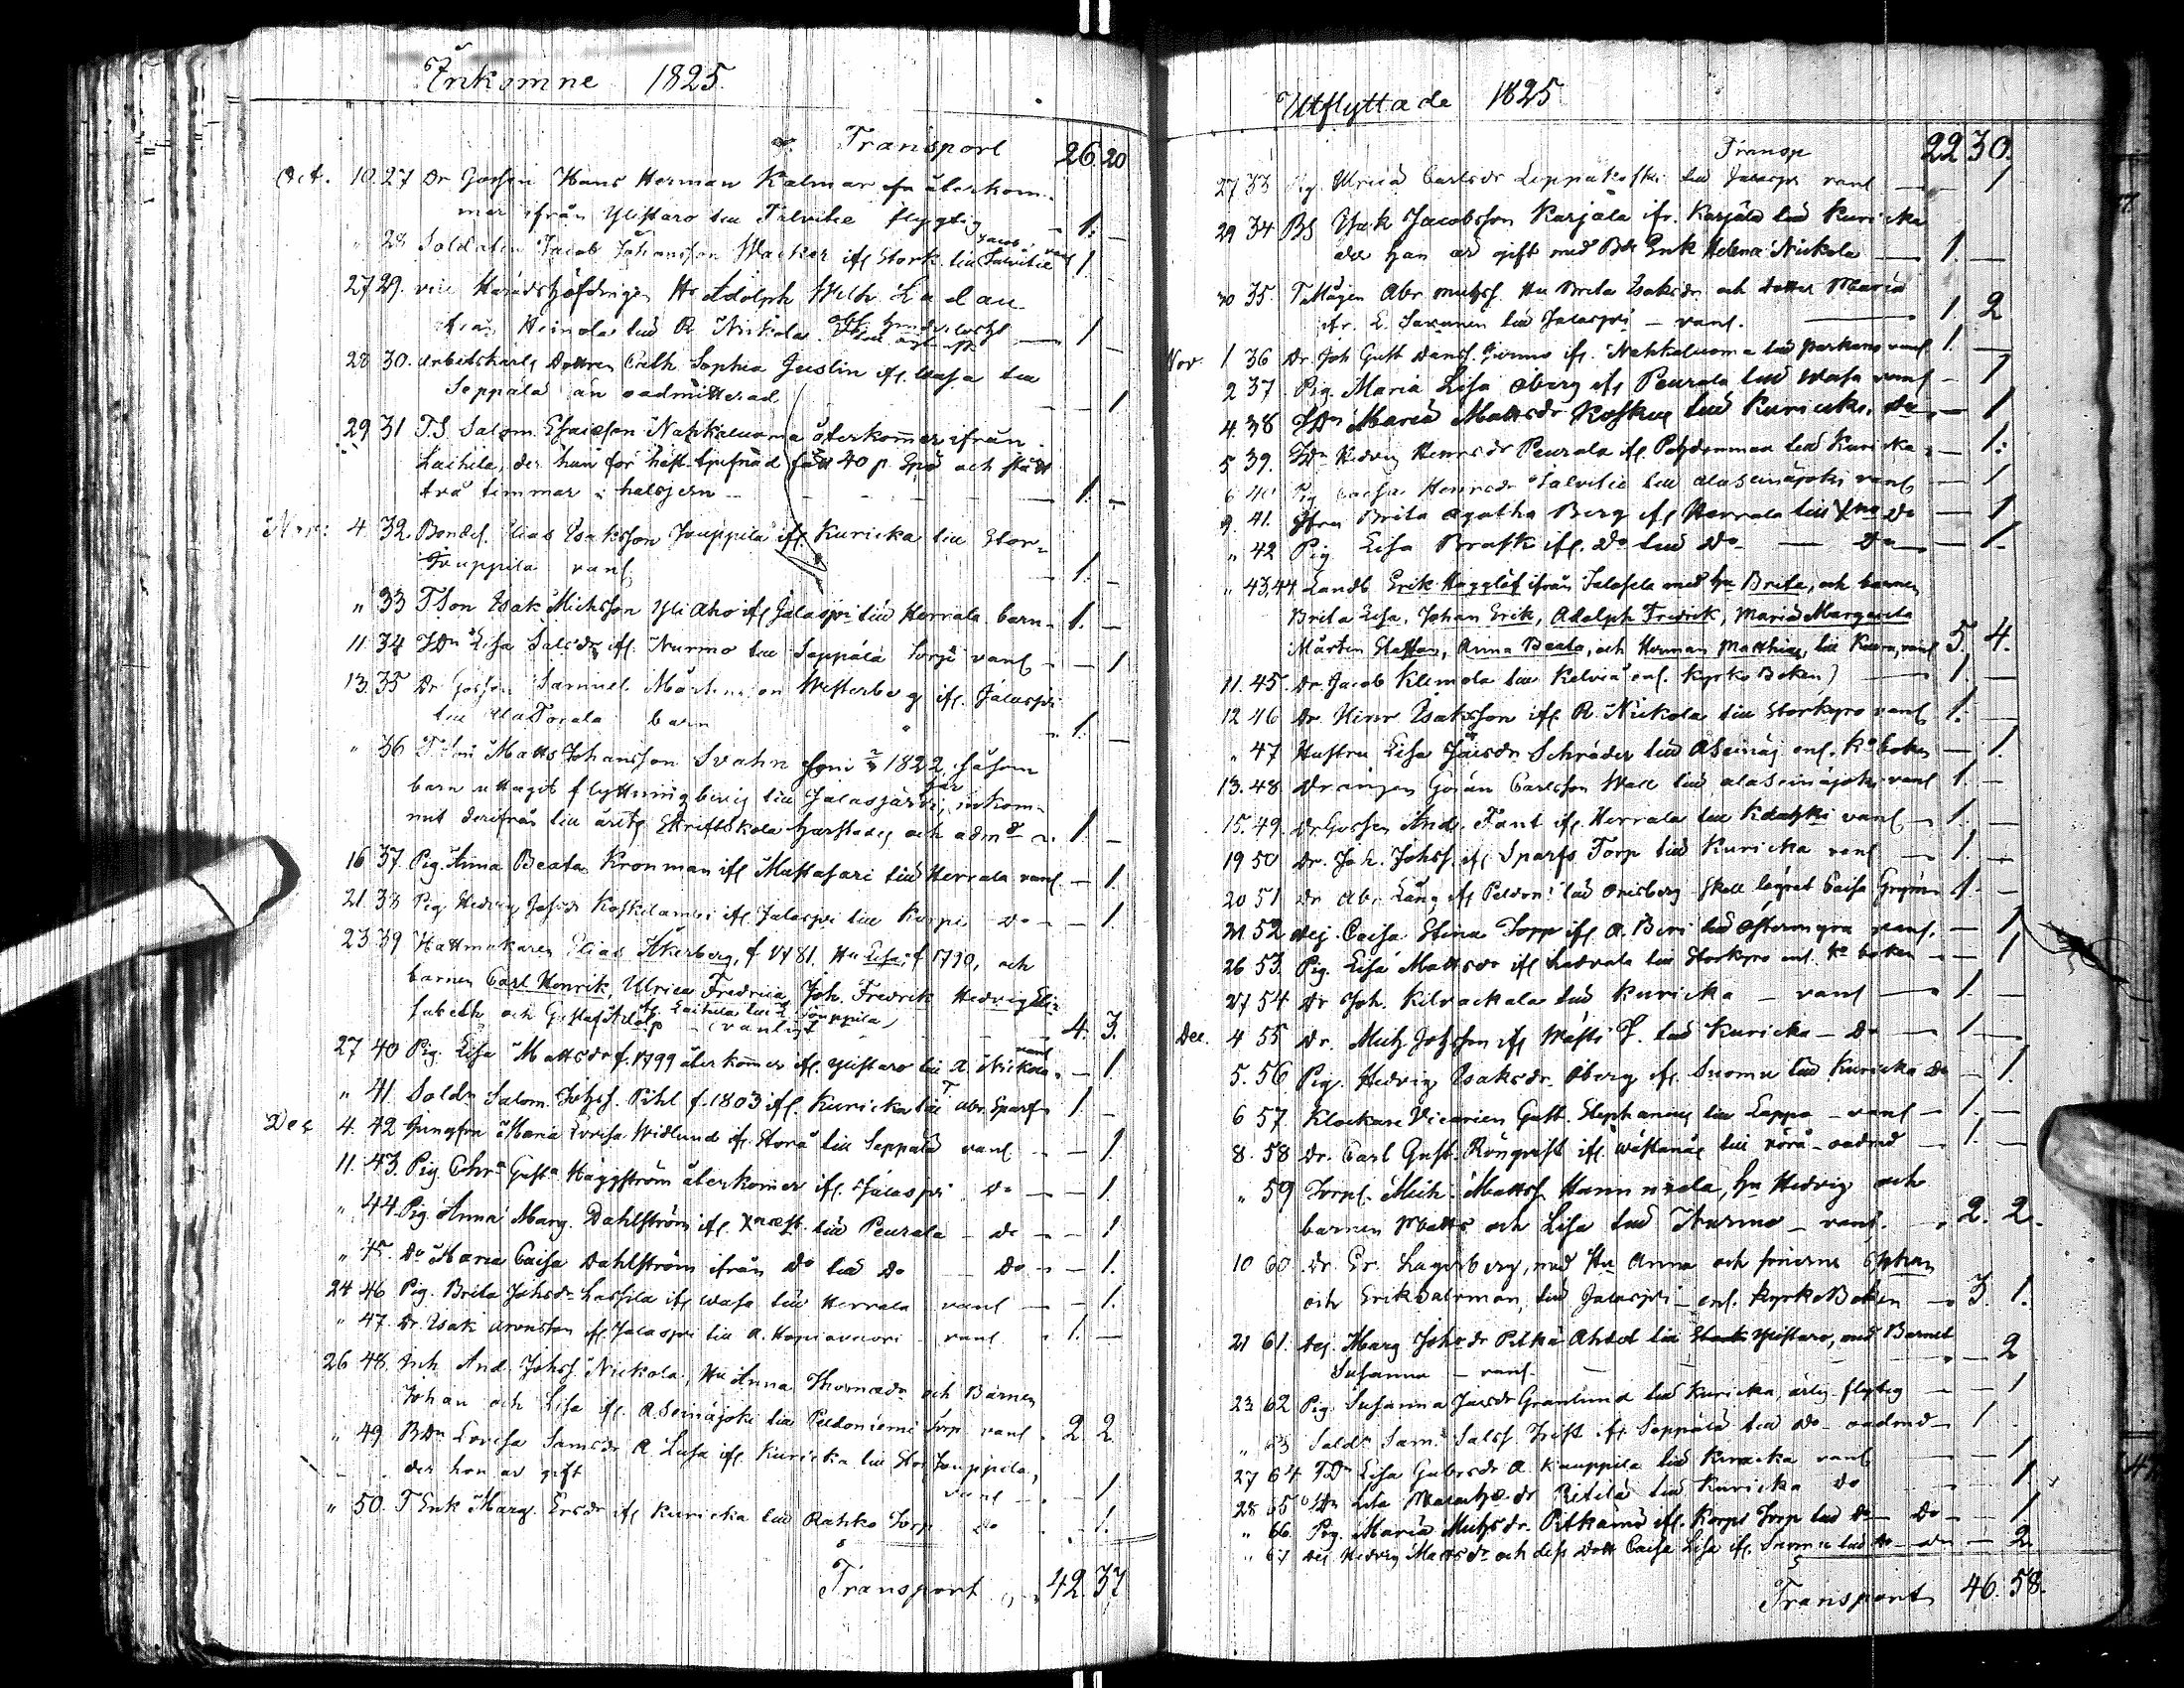 Inkomne 1825.
Transport 26. 20
Oct. 10. 27 Dr Gossen Hans Herman Kalmar återkom-
mer ifrån Ylistaro till Talvitie flygtig 1. —
" 28 Soldaten Jacob Johansson Wacker ifl Stork. till Talvitie vanl 1 —
27 29. vice Häradshöfdingen Hr Adolph Wilh. Ladau
från Heinola till A. Nickola 1 —
28 30. arbetskarls Dottren Cath. Sophia Juslin ifl. Wasa till
Seppälä än oadmitterad — 1
29 31 T.S. Salom. Esaiesson Nahkaluoma återkommer ifrån
Laihela, der han för fått 40 p. Spö och stått
två timmar i halsjern — 1. —
Nov: 4. 32. Bondes. Elias Isaksson Jouppila ifl Kuricka till Stor-
Jouppila vanl 1. —
" 33 TSon Isak Michsson Yliaho ifl Jalasjri till Herrala barn 1. —
11. 34 TDn Lisa Salsdr ifl. Nurmo till Seppälä Torp vanl — 1
13. 35 Dr Gossen Samuel Mårtensson Westerberg ifl. Jalasjri
till AlaTorala barn 1. —
" 36 Matts Johansson Svahn som 1822, såsom
barn uttagit flyttningbevis till Jalasjärvi, inkom-
mit derifrån till Skriftskola 1. —
16 37. Pig. Anna Beata Kronman ifl Mustasari till Herrala vanl — 1.
21. 38 Pig Hedvig Johsdr Koskilambi ifl. Jalasjri till Korpi Do — 1.
23 39 Hattmakaren Elias Åkerberg, f 1781. Hu Lisa f 1790, och
barnen Carl Henrik, Ulrica Fredrica, Joh. Fredrik Hedvig Eli-
sabeth och Gustaf Adolp ifl. Laihela till L Jouppila, vanligt 4. 3.
27 40 Pig. Lisa Mattsdr f. 1799 återkommer ifl. Ylistaro till A. Nickola vanl — 1
" 41. Soldn Salom. Johss. Pihl f. 1803 ifl. Kuricka till T Abr. Sparf 1. —
Dec 4. 42 Jungfrun Maria Lovisa Widlund ifl. Storå till Seppälä vanl — 1
11. 43. Pig Chra Gusta Häggström återkommer ifl. Jalasjri Do — 1.
" 44. Pig. Anna Marg. Dahlström ifl. Xnæst. till Peurala — do — 1
" 45. Do Maria Caisa Dahlström ifrån Do till Do — Do — 1.
24 46 Pig. Brita Johsdr Lassila ifl Wasa till Herrala vanl — 1.
" 47. Dr. Isak Aronsson ifl. Jalasjri till A. Hapiavuori vanl 1. —
26 48. Inh. And. Johss. Nickola, Hu Anna Thomædr och Barnen
Johan och Lisa ifl. A.Seinäjoki till Peldoniemi Torp vanl 2 2.
" 49 BDn Lovisa Samsdr A. Luha ifl. Kuricka till Stor Jouppila,
der hon är gift vanl — 1
" 50. T Enk Marg. Ersdr ifl Kuricka till Rahko Torp do — 1.
Transport 42. 37
Utflyttade 1825
Transp 22 30.
27 33 Pig. Ulrica Carlsdr Leppäkoski till Jalasjri vanl — 1
29 34 BS Isak Jacobsson Karjala ifr. Karjala till Kuricka
der han är gift med Bde Enk Helena Nickola 1. —
30 35. TMågen Abr. Michss. Hu Brita Isaksdr och dotter Maria
ifr. L. Savonen till Jalasjri — vanl. 1 2
Nov. 1 36 Dr. Joh Gust Danss. ifl. Nahkaluoma till Parkano vanl 1. —
2 37. Pig. Maria Lisa Öberg ifl Peurala till Wasa vanl — 1
4. 38 TDn Maria Mattsdr Koskue till Kuricka Do — 1
5 39. TDn Hedvig Henrsdr Peurala ifl. till Kuricka — 1:
6 40 Pig Caisa Henrsdr Talvitie till Alaseinäjoki vanl — 1
9. 41. Jfru Brita Agatha Berg ifl Herrala till Do — 1
" 42 Pig Lisa Brask ifl. Do till Do — Do — 1.
" 43,44 Landb Erik Hägglöf ifrån Jalasela med hu Brita, och barnen
Brita Lisa, Johan Erik, Adolph Fredrik, Maria Margareta
Mårten Staffan, Anna Beata, och Herman Matthias, till vanl 5. 4.
11. 45. Dr Jacob Klemola till Kelviå enl. Kyrko Boken) 1. —
12 46 Dr. Henr Isaksson ifl. A. Nickola till Storkyro vanl 1. —
" 47 Hustru Lisa Schröder till ASeinäj enl. Ko boken — 1.
13. 48. Drängen Göran Carlsson Wall till Alaseinäjoki vanl 1. —
15. 49. DrGossen And. Fant ifl. Herrala till vanl — 1. —
19 50 Dr. Joh. Johss. ifl Sparfs Torp till Kuricka vanl — 1. —
20 51 Dr Abr. Lång ifl Peldoni till Orisberg skall lägrat Caisa 1. —
21 52 Dej. Caisa Stina Topp ifl A. till Östermyra vanl. — 1
26 53. Pig. Lisa Mattsdr ifl Ladvala till Storkyro enl. Ko boken — 1
27 54 Dr Joh. Kilvackala till Kuricka — vanl — 1. —
Dec. 4 55 Dr. Mich Johsson ifl till Kuricka — Do — 1 —
5. 56 Pig. Hedvig Isaksdr. Öberg ifl Suomu till Kuricka Do — 1.
6 57. Klockare Vicarien Gust. Stephanæus till Lappo — vanl — 1. —
8. 58 Dr. Carl Gust. Rönqvist ifl Wästanås till Vörå — oadmd — 1. —
" 59 Torpl. Mich. Mattss. Hannuxela, hu Hedvig och
barnen Matts och Lisa till Nurmo — vanl. 2. 2.
10 60 Dr. Er. Lagerberg, med Hu Anna och sönerne
och Erik till Jalasjri — enl. KyrkoBoken — 3. 1.
21 61. Dej. Marg Johsdr PitkäAhdet till Ylistaro, med Barnet
Susanna — vanl. — 2
23 62 Pig Susanna Jacsdr Granlund till Kuricka, ärlig flytig — 1
" 63 Soldn Sam. Salss Trift ifl. Seppälä till Do — oadmd — 1
27 64 TDn Lisa Gabrsdr A. Kauppila till Kuricka vanl — 1
28 65 TDn Lisa Ritilä till Kuricka Do — 1
" 66 Pig. Maria Michsdr. Pitkämö ifl. Korpi Torp till Do — Do — 1
" 67 Dej. Hedvig Mattsdr och dess Dott Caisa Lisa ifl. Suomu till Do — Do — 2
Transport 46. 58.